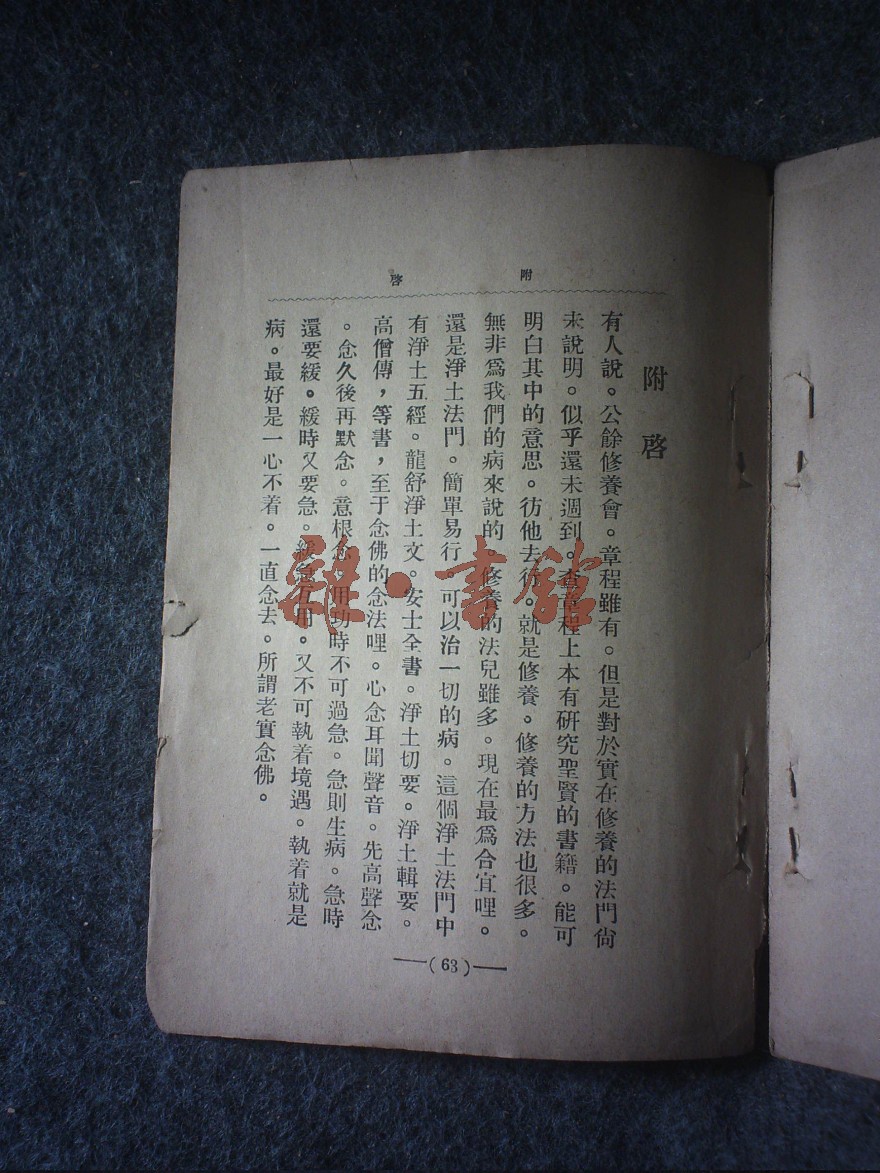 附啓
附啓
有人說。公餘修養會。章程雖有。但是對於實在修養的法門尙
未說明。似乎還未週到。查章程上本有研究聖賢的書籍。能可
明白其中的意思。彷他去行。就是修養。修養的方法也很多。
無非爲我們的病來說的。修養的法兒雖多。現在最爲合宜哩。
還是淨土法門。簡單易行。可以治一切的病。這個淨土法門中
有淨土五經。龍舒淨土文。安士全書。淨土切要。淨土輯要。
高僧傳，等書，至于念佛的念法哩。心念耳聞聲音。先高聲念
。念久後再默念。意根念。用功時不可過急。急則生病。急時
還要緩。緩時又要急。緩急互用。又不可執着境遇。執着就是
病。最好是一心不着。一直念去。所謂老實念佛。
—(63)—
雜·書館